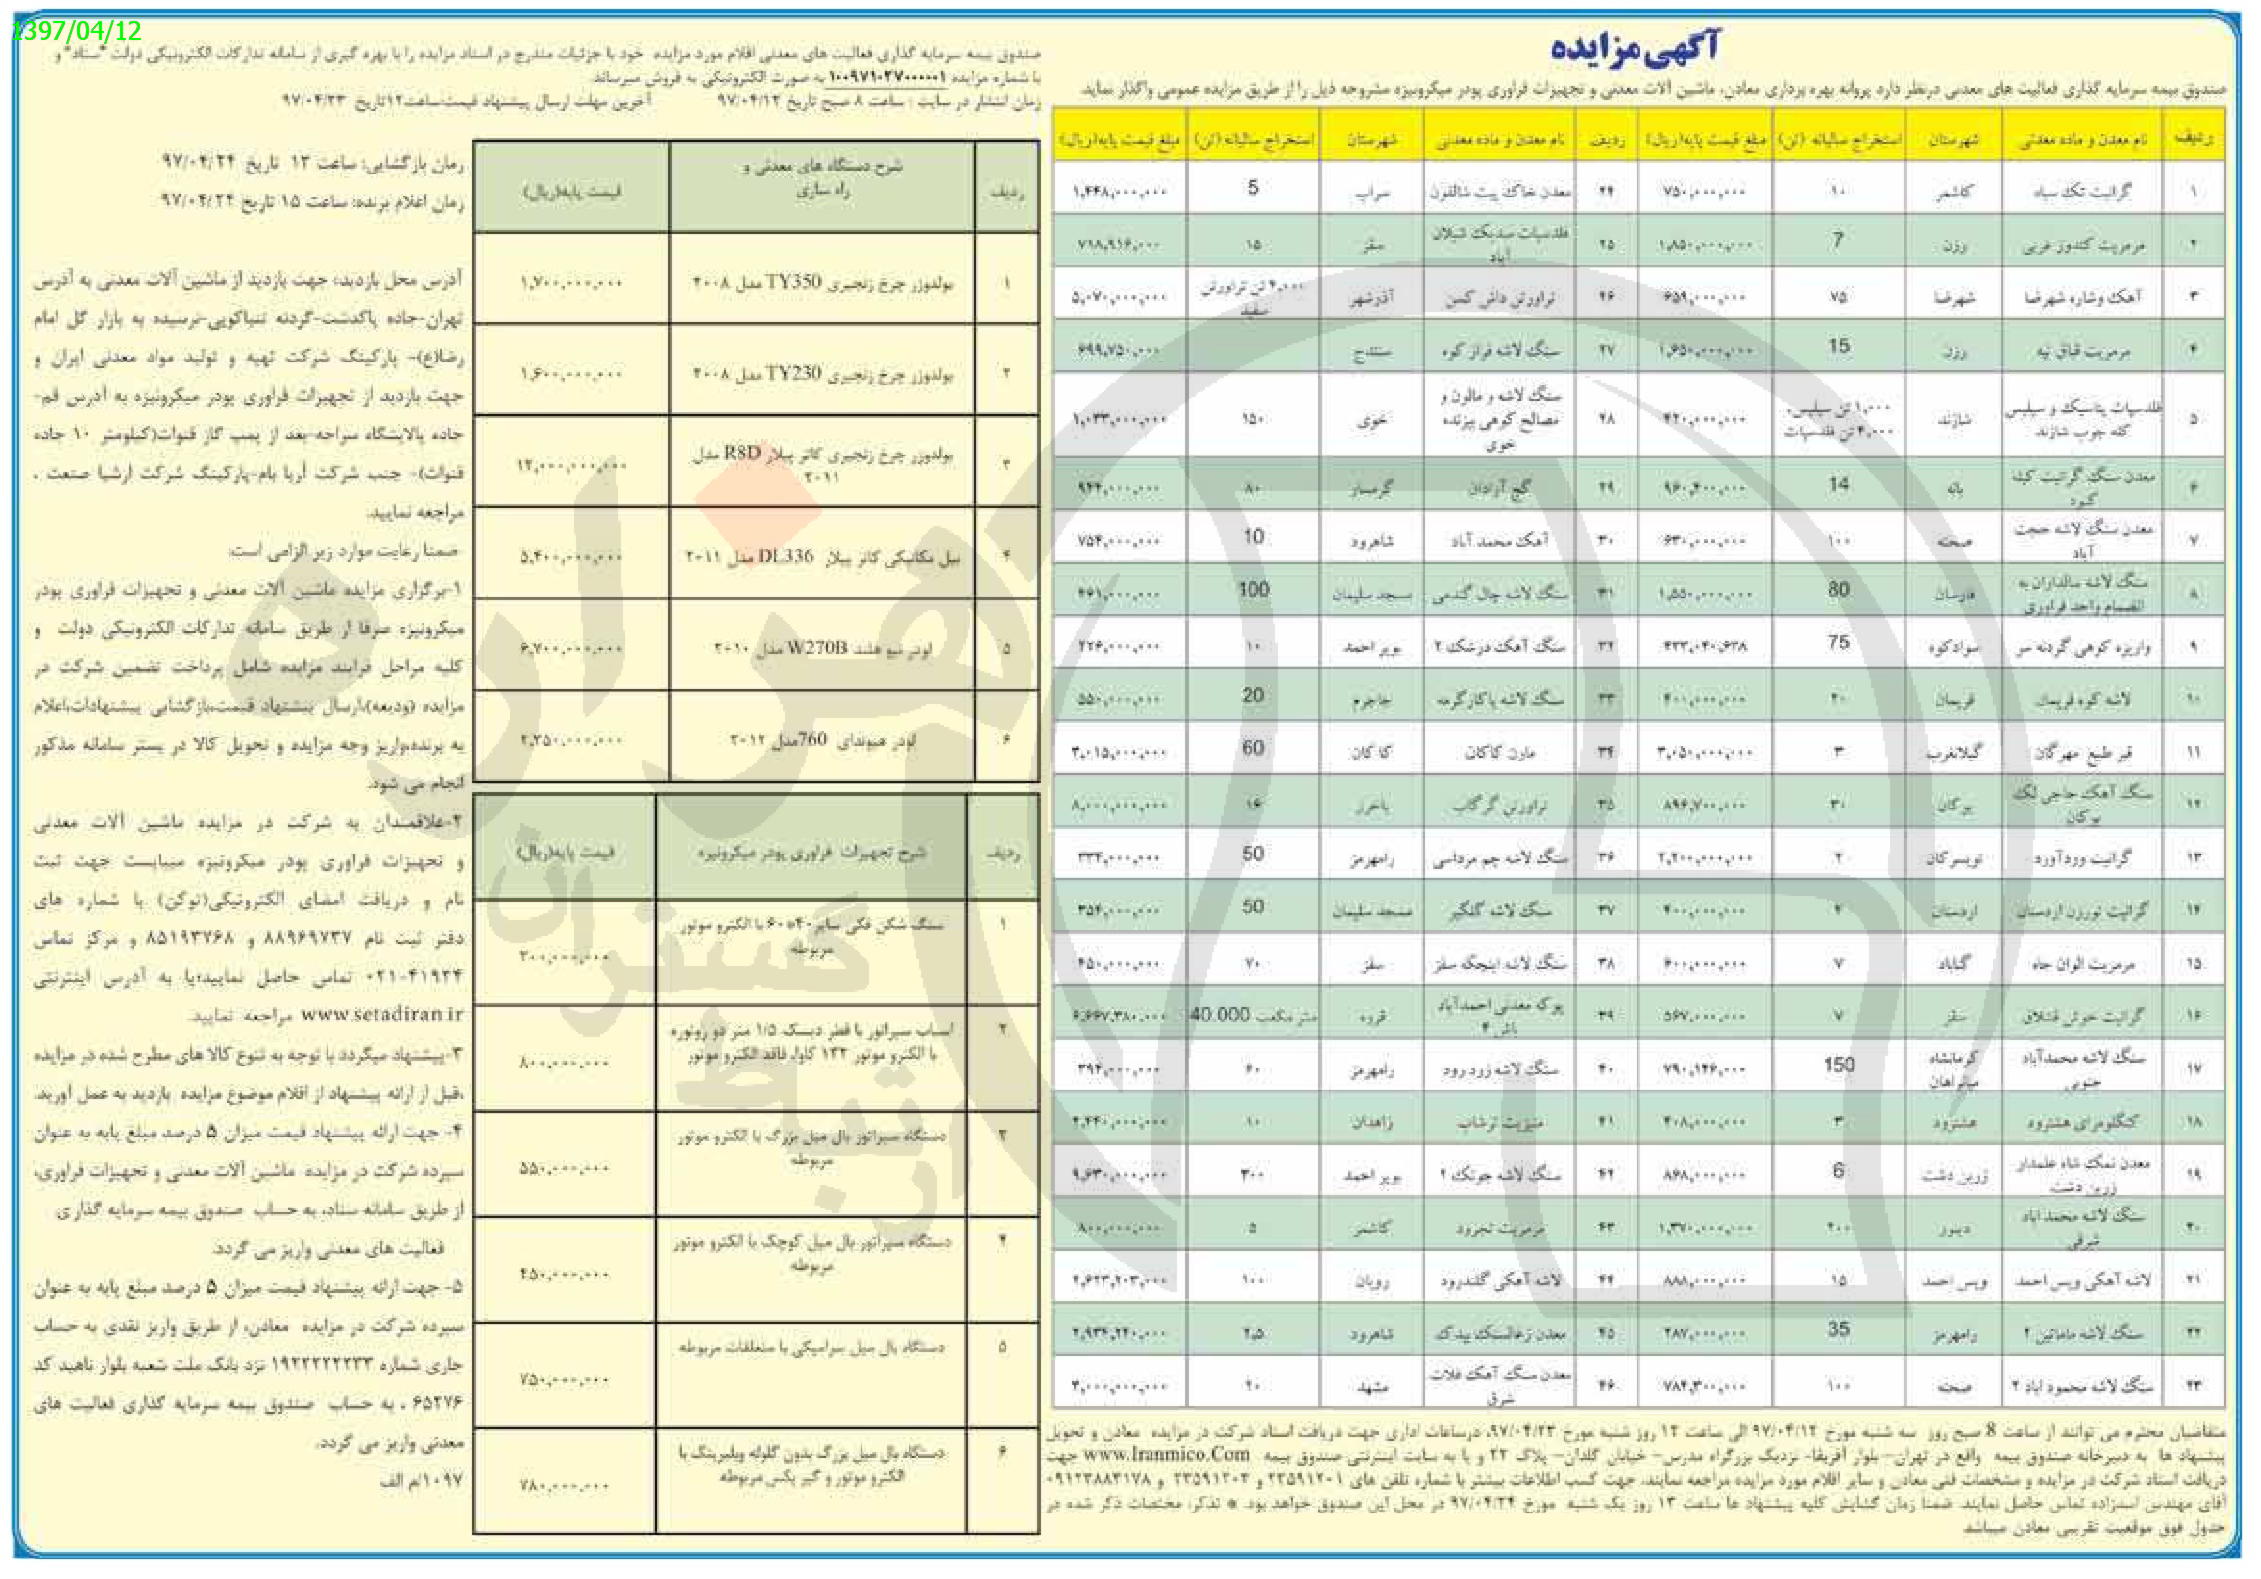 1397/04/12
آگهی مزایده
صندوق بیمه سرمایه گذاری فعالیت های معدنی درنظر دارد پروانه بهره برداری معادن، ماشین آلات معدنی و تجهیزات فراوری پودر میکرونیزه مشروحه ذیل را از طریق مزایده عمومی واگذار نماید.
ردیف نام معدن و ماده معدنی شهرستان استخراج سالیانه (تن) مبلغ قیمت پایه(ریال) ردیف نام معدن و ماده معدنی شهرستان استخراج سالیانه (تن) مبلغ قیمت پایه(ریال)
۱ گرانیت تک سیاه کاشمر ۱۰ ۷۵۰,۰۰۰,۰۰۰ ۲۴ معدن خاک پیت شالقون سراب 5 ۱,۴۴۸,۰۰۰,۰۰۰
۲ مرمریت کندوز غربی رزن 7 ۱,۸۵۰,۰۰۰,۰۰۰ ۲۵ فلدسپات سدیک شیلان آباد سقز ۱۵ ۷۱۸,۹۱۶,۰۰۰
۳ آهک وشاره شهرضا شهرضا ۷۵ ۶۵۹,۰۰۰,۰۰۰ ۲۶ تراورتن داش کسن آذرشهر ۴,۰۰۰ تن تراورتن سفید ۵,۰۷۰,۰۰۰,۰۰۰
۴ مرمریت قباق تپه رزن 15 ۱,۶۵۰,۰۰۰,۰۰۰ ۲۷ سنگ لاشه فراز کوه سنندج ۶۹۹,۷۵۰,۰۰۰
۵ فلدسپات پتاسیک و سیلیس کله چوب شازند شازند ۱,۰۰۰ تن سیلیس، ۴,۰۰۰ تن فلدسپات ۴۲۰,۰۰۰,۰۰۰ ۲۸ سنگ لاشه و مالون و مصالح کوهی بیزنده خوی خوی ۱۵۰ ۱,۰۳۳,۰۰۰,۰۰۰
۶ معدن سنگ گرانیت کیله کبود بانه 14 ۹۶۰,۴۰۰,۰۰۰ ۲۹ گچ آرادان گرمسار ۸۰ ۹۴۴,۰۰۰,۰۰۰
۷ معدن سنگ لاشه حجت آباد صحنه ۱۰۰ ۶۳۰,۰۰۰,۰۰۰ ۳۰ آهک محمد آباد شاهرود 10 ۷۵۴,۰۰۰,۰۰۰
۸ سنگ لاشه سالداران به انضمام واحد فراوری فارسان 80 ۱,۵۵۰,۰۰۰,۰۰۰ ۳۱ سنگ لاشه چال گندمی مسجد سلیمان 100 ۴۶۱,۰۰۰,۰۰۰
۹ واریزه کوهی گردنه سر سوادکوه 75 ۴۳۲,۰۴۰,۶۳۸ ۳۲ سنگ آهک درشک ۲ بویر احمد ۱۰ ۲۲۶,۰۰۰,۰۰۰
۱۰ لاشه کوه فریمان فریمان ۲۰ ۴۰۰,۰۰۰,۰۰۰ ۳۳ سنگ لاشه پاکارگرمه جاجرم 20 ۵۵۰,۰۰۰,۰۰۰
۱۱ قیر طبیع مهرگان گیلانغرب ۳ ۳,۰۵۰,۰۰۰,۰۰۰ ۳۴ مارن کاکان کاکان 60 ۳,۰۱۵,۰۰۰,۰۰۰
۱۲ سنگ آهک حاجی لک بوکان بوکان ۳۰ ۸۹۶,۷۰۰,۰۰۰ ۳۵ تراورتن گرگاب باخرز ۱۶ ۸,۰۰۰,۰۰۰,۰۰۰
۱۳ گرانیت وردآورد تویسرکان ۲ ۲,۲۰۰,۰۰۰,۰۰۰ ۳۶ سنگ لاشه چم مرداسی رامهرمز 50 ۳۳۴,۰۰۰,۰۰۰
۱۴ گرانیت نورزن اردستان اردستان ۴ ۴۰۰,۰۰۰,۰۰۰ ۳۷ سنگ لاشه گلگیر مسجد سلیمان 50 ۳۵۴,۰۰۰,۰۰۰
۱۵ مرمریت الوان جاه گناباد ۷ ۶۰۰,۰۰۰,۰۰۰ ۳۸ سنگ لاشه اینچکه سقز سقز ۷۰ ۴۵۰,۰۰۰,۰۰۰
۱۶ گرانیت خوش قشلاق سقز ۷ ۵۶۷,۰۰۰,۰۰۰ ۳۹ پوکه معدنی احمدآباد باش ۴ قروه 40.000 متر مکعب ۶,۶۶۷,۳۸۰,۰۰۰
۱۷ سنگ لاشه محمدآباد جنوبی کرمانشاه میانراهان 150 ۷۹۰,۱۴۶,۰۰۰ ۴۰ سنگ لاشه زرد رود رامهرمز ۶۰ ۳۹۴,۰۰۰,۰۰۰
۱۸ کنگلومرای هشترود هشترود ۳ ۴۰۸,۰۰۰,۰۰۰ ۴۱ منیزیت ترشاب زاهدان ۱۰ ۲,۴۴۰,۰۰۰,۰۰۰
۱۹ معدن نمک شاه علمدار زرین دشت زرین دشت 6 ۸۶۸,۰۰۰,۰۰۰ ۴۲ سنگ لاشه جونک ۲ بویر احمد ۳۰۰ ۹,۶۳۰,۰۰۰,۰۰۰
۲۰ سنگ لاشه محمد آباد شرقی دینور ۲۰۰ ۱,۳۷۰,۰۰۰,۰۰۰ ۴۳ مرمریت تجرود کاشمر ۵ ۸۰۰,۰۰۰,۰۰۰
۲۱ لاشه آهکی ویس احمد ویس احمد ۱۵ ۸۸۸,۰۰۰,۰۰۰ ۴۴ لاشه آهکی گلندرود رویان ۱۰۰ ۲,۶۲۳,۲۰۳,۰۰۰
۲۲ سنگ لاشه ماماتین ۲ رامهرمز 35 ۲۸۷,۰۰۰,۰۰۰ ۴۵ معدن زغالسنگ بیدک شاهرود ۲,۵ ۲,۹۳۴,۲۴۰,۰۰۰
۲۳ سنگ لاشه محمود آباد ۲ صحنه ۱۰۰ ۷۸۴,۳۰۰,۰۰۰ ۴۶ معدن سنگ آهک فلات شرق مشهد ۲۰ ۳,۰۰۰,۰۰۰,۰۰۰
متقاضیان محترم می توانند از ساعت 8 صبح روز سه شنبه مورخ ۹۷/۰۴/۱۲ الی ساعت ۱۲ روز شنبه مورخ ۹۷/۰۴/۲۳، درساعات اداری جهت دریافت اسناد شرکت در مزایده معادن و تحویل
پیشنهاد ها به دبیرخانه صندوق بیمه واقع در تهران– بلوار آفریقا- نزدیک بزرگراه مدرس– خیابان گلدان– پلاک ۲۲ و یا به سایت اینترنتی صندوق بیمه www.Iranmico.Com جهت
دریافت اسناد شرکت در مزایده و مشخصات فنی معادن و سایر اقلام مورد مزایده مراجعه نمایند. جهت کسب اطلاعات بیشتر با شماره تلفن های ۲۳۵۹۱۲۰۱ و ۲۳۵۹۱۲۰۳ و ۰۹۱۲۳۸۸۳۱۷۸
آقای مهندس اسدزاده تماس حاصل نمایند. ضمنا زمان گشایش کلیه پیشنهاد ها ساعت ۱۳ روز یک شنبه مورخ ۹۷/۰۴/۲۴ در محل این صندوق خواهد بود. * تذکر: مختصات ذکر شده در
جدول فوق موقعیت تقریبی معادن میباشد
صندوق بیمه سرمایه گذاری فعالیت های معدنی اقلام مورد مزایده خود با جزئیات مندرج در اسناد مزایده را با بهره گیری از سامانه تدارکات الکترونیکی دولت "ستاد" و
با شماره مزایده ۱۰۰۹۷۱۰۲۷۰۰۰۰۰۱ به صورت الکترونیکی به فروش میرساند
زمان انتشار در سایت : ساعت ۸ صبح تاریخ ۹۷/۰۴/۱۲ آخرین مهلت ارسال پیشنهاد قیمت:ساعت۱۲تاریخ ۹۷/۰۴/۲۳
ردیف شرح دستگاه های معدنی و راه سازی قیمت پایه(ریال)
۱ بولدوزر چرخ زنجیری TY350 مدل ۲۰۰۸ ۱,۷۰۰,۰۰۰,۰۰۰
۲ بولدوزر چرخ زنجیری TY230 مدل ۲۰۰۸ ۱,۶۰۰,۰۰۰,۰۰۰
۳ بولدوزر چرخ زنجیری کاتر پیلار R8D مدل ۲۰۱۱ ۱۲,۰۰۰,۰۰۰,۰۰۰
۴ بیل مکانیکی کاتر پیلار DL336 مدل ۲۰۱۱ ۵,۴۰۰,۰۰۰,۰۰۰
۵ لودر نیو هلند W270B مدل ۲۰۱۰ ۶,۷۰۰,۰۰۰,۰۰۰
۶ لودر هیوندای 760مدل ۲۰۱۲ ۲,۲۵۰,۰۰۰,۰۰۰
ردیف شرح تجهیزات فراوری پودر میکرونیزه قیمت پایه(ریال)
۱ سنگ شکن فکی سایز ۴۰*۶۰ با الکترو موتور مربوطه ۳۰۰,۰۰۰,۰۰۰
۲ آسیاب سپراتور با قطر دیسک ۱/۵ متر دو روتوره با الکترو موتور ۱۳۲ کاوا، فاقد الکترو موتور ۸۰۰,۰۰۰,۰۰۰
۳ دستگاه سپراتور بال میل بزرگ با الکترو موتور مربوطه ۵۵۰,۰۰۰,۰۰۰
۴ دستگاه سپراتور بال میل کوچک با الکترو موتور مربوطه ۴۵۰,۰۰۰,۰۰۰
۵ دستگاه بال میل سرامیکی با متعلقات مربوطه ۷۵۰,۰۰۰,۰۰۰
۶ دستگاه بال میل بزرگ بدون گلوله وبلبرینگ با الکترو موتور و گیر بکس مربوطه ۷۸۰,۰۰۰,۰۰۰
زمان بازگشایی: ساعت ۱۳ تاریخ ۹۷/۰۴/۲۴
زمان اعلام برنده: ساعت ۱۵ تاریخ ۹۷/۰۴/۲۴
آدرس محل بازدید: جهت بازدید از ماشین آلات معدنی به آدرس
تهران-جاده پاکدشت-گردنه تنباکویی-نرسیده به بازار گل امام
رضا(ع)- پارکینگ شرکت تهیه و تولید مواد معدنی ایران و
جهت بازدید از تجهیزات فراوری پودر میکرونیزه به آدرس قم-
جاده پالایشگاه سراجه-بعد از پمپ گاز قنوات(کیلومتر ۱۰ جاده
قنوات)- جنب شرکت آریا بام-پارکینگ شرکت ارشیا صنعت ،
مراجعه نمایید.
ضمنا رعایت موارد زیر الزامی است:
۱-برگزاری مزایده ماشین آلات معدنی و تجهیزات فراوری پودر
میکرونیزه صرفا از طریق سامانه تدارکات الکترونیکی دولت و
کلیه مراحل فرایند مزایده شامل پرداخت تضمین شرکت در
مزایده (ودیعه)،ارسال پیشنهاد قیمت،بازگشایی پیشنهادات،اعلام
به برنده،واریز وجه مزایده و تحویل کالا در بستر سامانه مذکور
انجام می شود.
۲-علاقمندان به شرکت در مزایده ماشین آلات معدنی
و تجهیزات فراوری پودر میکرونیزه میبایست جهت ثبت
نام و دریافت امضای الکترونیکی(توکن) با شماره های
دفتر ثبت نام ۸۸۹۶۹۷۳۷ و ۸۵۱۹۳۷۶۸ و مرکز تماس
۰۲۱-۴۱۹۳۴ تماس حاصل نمایید؛یا به آدرس اینترنتی
www.setadiran.ir مراجعه نمایید.
۳-پیشنهاد میگردد با توجه به تنوع کالا های مطرح شده در مزایده
،قبل از ارائه پیشنهاد از اقلام موضوع مزایده بازدید به عمل آورید.
۴- جهت ارائه پیشنهاد قیمت میزان ۵ درصد مبلغ پایه به عنوان
سپرده شرکت در مزایده ماشین آلات معدنی و تجهیزات فراوری،
از طریق سامانه ستاد، به حساب صندوق بیمه سرمایه گذاری
فعالیت های معدنی واریز می گردد.
۵- جهت ارائه پیشنهاد قیمت میزان ۵ درصد مبلغ پایه به عنوان
سپرده شرکت در مزایده معادن، از طریق واریز نقدی به حساب
جاری شماره ۱۹۲۲۲۲۲۲۳۳ نزد بانک ملت شعبه بلوار ناهید کد
۶۵۲۷۶ ، به حساب صندوق بیمه سرمایه گذاری فعالیت های
معدنی واریز می گردد.
۱۰۹۷/م الف